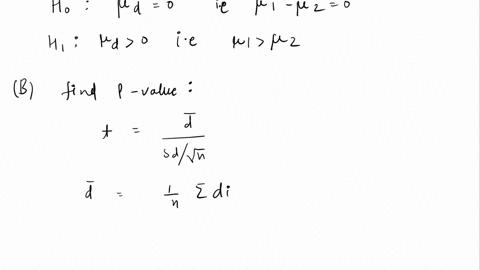 H₀ : μd = 0 ie μ1 - μ2 = 0
H₁ : μd > 0 i.e μ1 > μ2
(B) find P-value :
t = d̄ / sd/√n
d̄ = 1/n Σ di